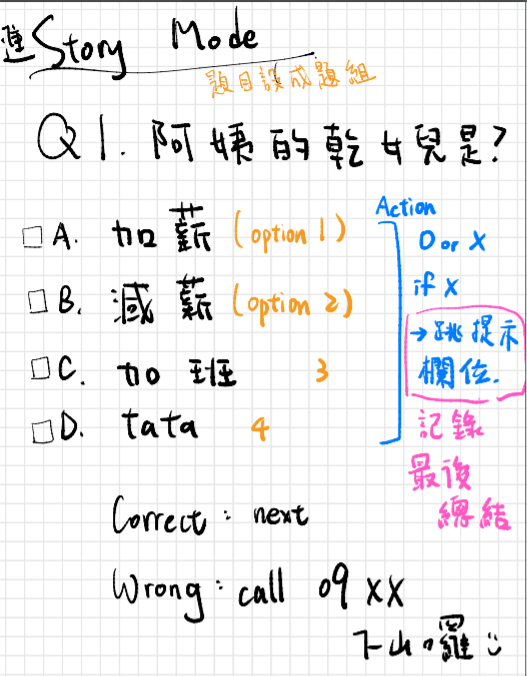 進 Story Mode
題目設成題組
Q1. 阿姨的乾女兒是?
A. 加薪 (option 1)
B. 減薪 (option 2)
C. 加班 3
D. tata 4
Action
O or X
if X
→跳提示
欄位.
記錄
最後
總結
Correct : next
Wrong : call 09 XX
下山囉 :)